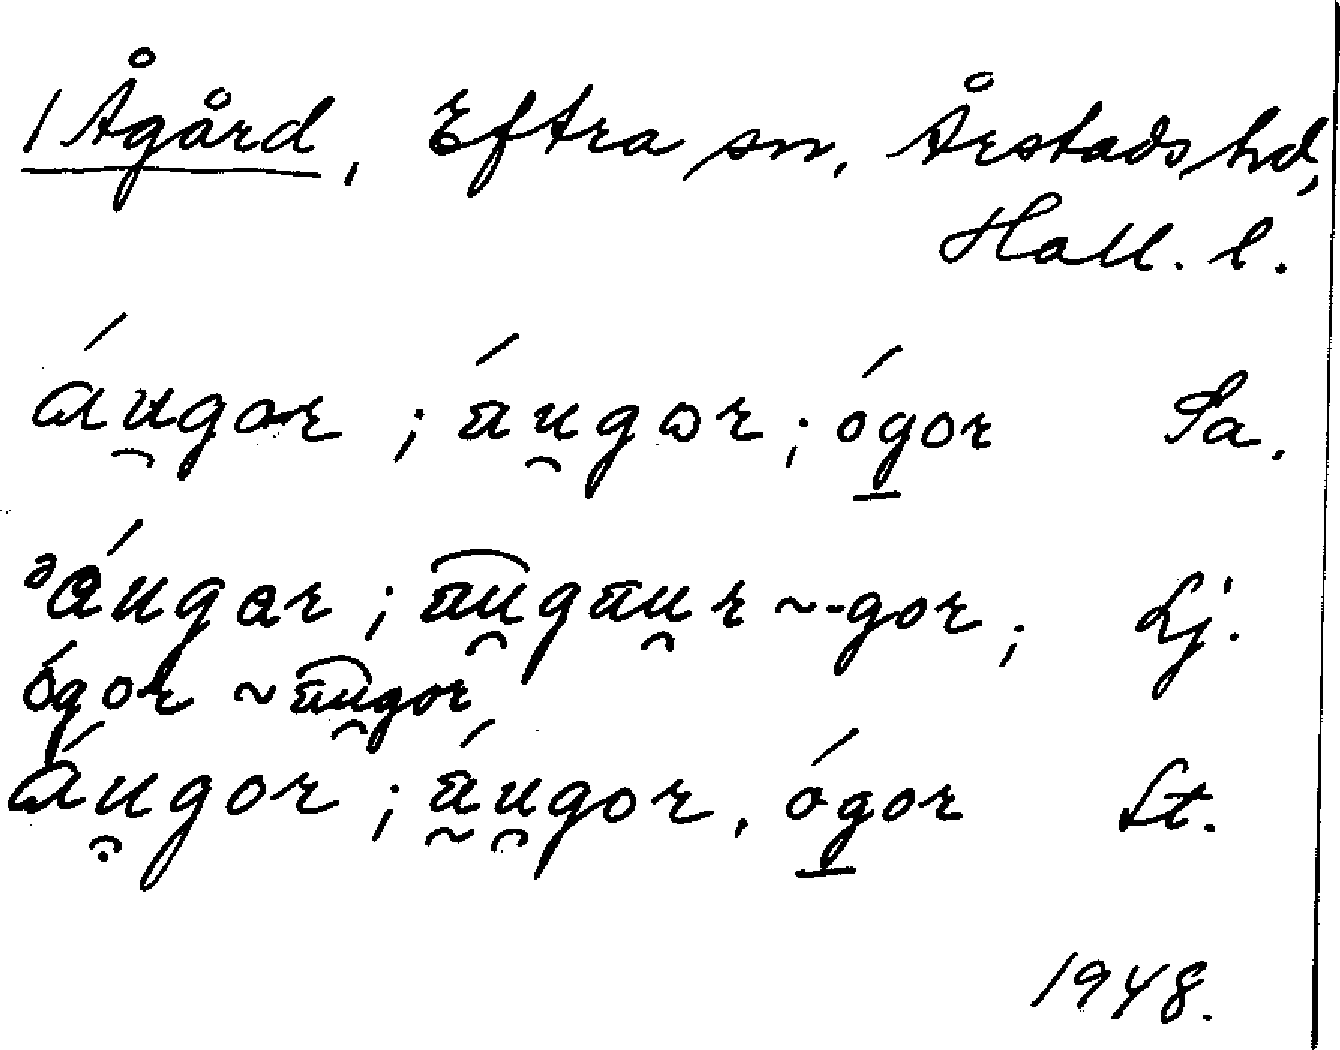 1 Ågård, Eftra sn, Årstads hd,
Hall. l.
áu̯gor ; áu̯gɷr ; ógor Sa.
áugar ; au̯gau̯r ~ -gor ; Lj.
ógor ~ au̯gor
áu̯gor ; áu̯gor, ógor St.
1948.